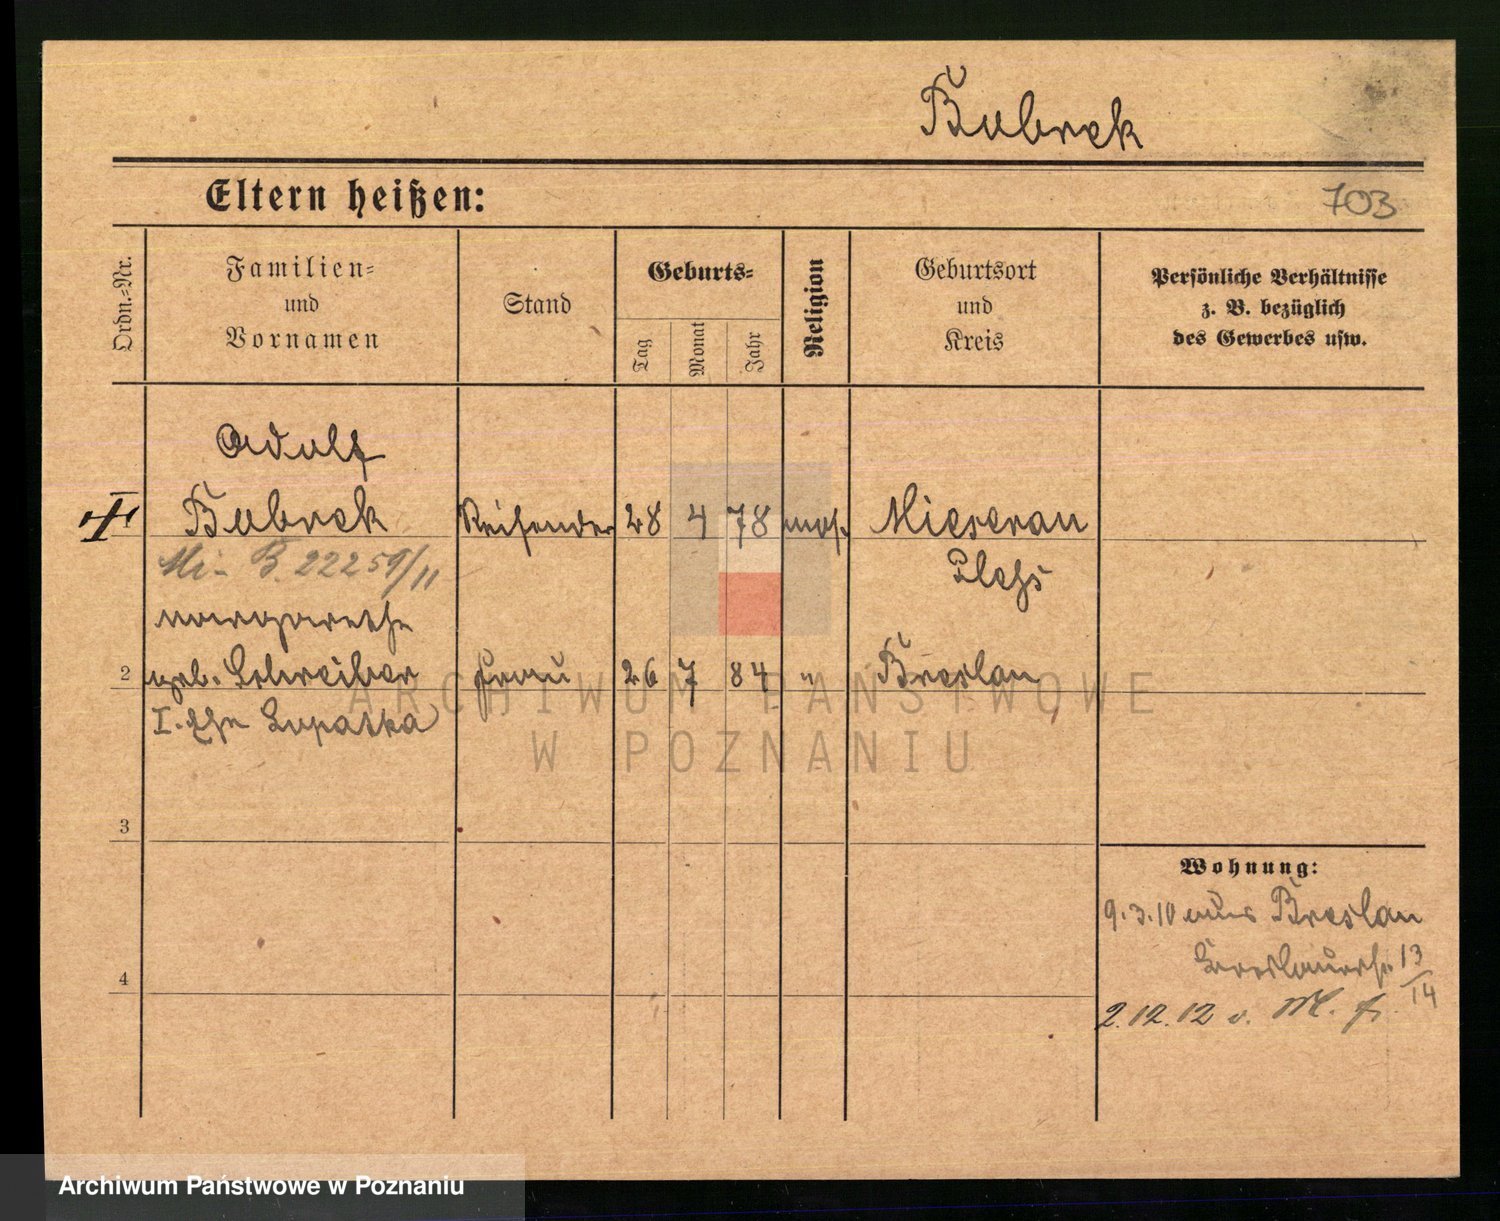 Bubrek
Eltern heißen:
703
Ordn.-Nr.
Familien-
und
Vornamen
Stand
Geburts-
Tag
Monat
Jahr
Religion
Geburtsort
und
Kreis
Persönliche Verhältnisse
z. B. bezüglich
des Gewerbes usw.
Adolf
Bubrek Reisender 28 4 78 mos.
Pleß
B. 22259/11
Margarethe
2 geb. Schreiber Frau 26 7 84 " Breslau
I. Ehe Lopatka
3
4
Wohnung:
9.3.10 aus Breslau
13/14
2.12.12 v.
ARCHIWUM PAŃSTWOWE
W POZNANIU
Archiwum Państwowe w Poznaniu